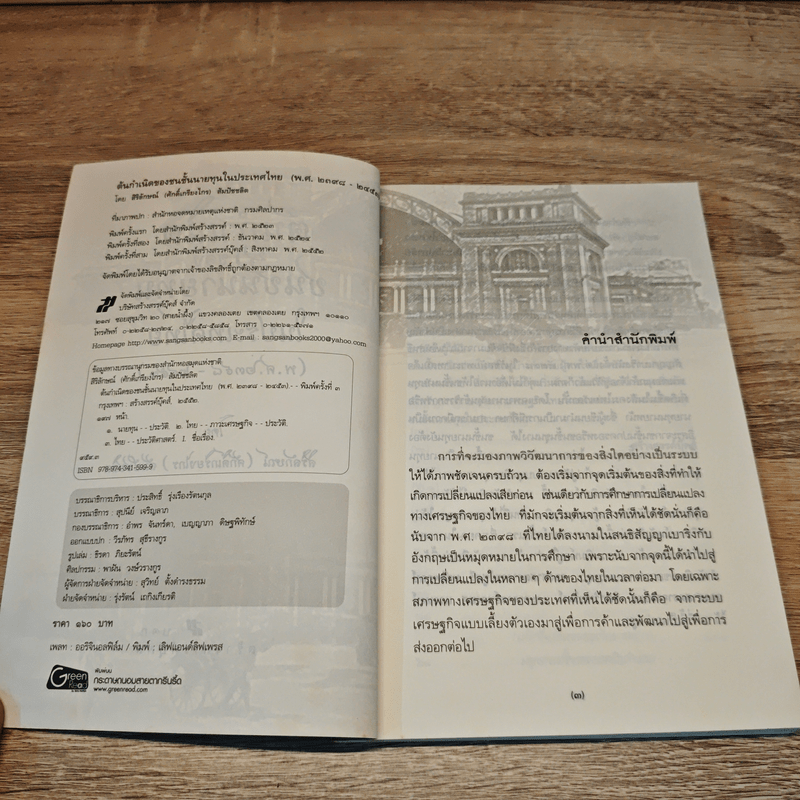 ต้นกำเนิดของชนชั้นนายทุนในประเทศไทย (พ.ศ. ๒๓๙๘ -
โดย สิริลักษณ์ (ศักดิ์เกรียงไกร) สัมปัชชลิต
ที่มาภาพปก : สำนักหอจดหมายเหตุแห่งชาติ กรมศิลปากร
พิมพ์ครั้งแรก โดยสำนักพิมพ์สร้างสรรค์ : พ.ศ. ๒๕๒๓
พิมพ์ครั้งที่สอง โดยสำนักพิมพ์สร้างสรรค์ : ธันวาคม พ.ศ. ๒๕๒๔
พิมพ์ครั้งที่สาม โดยสำนักพิมพ์สร้างสรรค์บุ๊คส์ : สิงหาคม พ.ศ. ๒๕๕๒
จัดพิมพ์โดยได้รับอนุญาตจากเจ้าของลิขสิทธิ์ถูกต้องตามกฎหมาย
จัดพิมพ์และจัดจำหน่ายโดย
บริษัทสร้างสรรค์บุ๊คส์ จำกัด
๒๑๗ ซอยสุขุมวิท ๒๐ (สายน้ำผึ้ง) แขวงคลองเตย เขตคลองเตย กรุงเทพฯ ๑๐๑๑๐
โทรศัพท์ ๐-๒๒๕๘-๒๗๒๔, ๐-๒๒๕๘-๕๘๕๘ โทรสาร ๐-๒๒๖๑-๕๗๗๑
Homepage http://www.sangsanbooks.com E-mail sangsanbooks2000@yahoo.com
ข้อมูลทางบรรณานุกรมของสำนักหอสมุดแห่งชาติ
สิริลักษณ์ (ศักดิ์เกรียงไกร) สัมปัชชลิต
ต้นกำเนิดของชนชั้นนายทุนในประเทศไทย (พ.ศ. ๒๓๙๘ - ๒๔๕๓).- - พิมพ์ครั้งที่ ๓
กรุงเทพฯ : สร้างสรรค์บุ๊คส์, ๒๕๕๒.
๑๙๗ หน้า.
๑. นายทุน - - ประวัติ. ๒. ไทย - - ภาวะเศรษฐกิจ - - ประวัติ.
๓. ไทย - - ประวัติศาสตร์. I. ชื่อเรื่อง.
ISBN 978-974-341-599-9
บรรณาธิการบริหาร : ประสิทธิ์ รุ่งเรืองรัตนกุล
บรรณาธิการ : สุปนีย์ เจริญลาภ
กองบรรณาธิการ : อำพร จันทร์ดา, เบญญาภา ดิษฐพิทักษ์
ออกแบบปก : วีรภัทร สุธีรางกูร
รูปเล่ม : ธิรดา ภิยะรัตน์
ศิลปกรรม : พาฝัน วงษ์วรางกูร
ผู้จัดการฝ่ายจัดจำหน่าย : สุวิทย์ ตั้งดำรงธรรม
ฝ่ายจัดจำหน่าย : รุ่งรัตน์ เถกิงเกียรติ
ราคา ๑๖๐ บาท
เพลท : ออริจินอลฟิล์ม / พิมพ์ : เลิฟแอนด์ลิฟเพรส
Green Read
พิมพ์บน
กระดาษถนอมสายตากรีนรี้ด
www.greenread.com
คำนำสำนักพิมพ์
การที่จะมองภาพวิวัฒนาการของสิ่งใดอย่างเป็นระบบ
ให้ได้ภาพชัดเจนครบถ้วน ต้องเริ่มจากจุดเริ่มต้นของสิ่งที่ทำให้
เกิดการเปลี่ยนแปลงเสียก่อน เช่นเดียวกับการศึกษาการเปลี่ยนแปลง
ทางเศรษฐกิจของไทย ที่มักจะเริ่มต้นจากสิ่งที่เห็นได้ชัดนั่นก็คือ
นับจาก พ.ศ. ๒๓๙๘ ที่ไทยได้ลงนามในสนธิสัญญาเบาริ่งกับ
อังกฤษเป็นหมุดหมายในการศึกษา เพราะนับจากจุดนี้ได้นำไปสู่
การเปลี่ยนแปลงในหลาย ๆ ด้านของไทยในเวลาต่อมา โดยเฉพาะ
สภาพทางเศรษฐกิจของประเทศที่เห็นได้ชัดนั้นก็คือ จากระบบ
เศรษฐกิจแบบเลี้ยงตัวเองมาสู่เพื่อการค้าและพัฒนาไปสู่เพื่อการ
ส่งออกต่อไป
(๓)